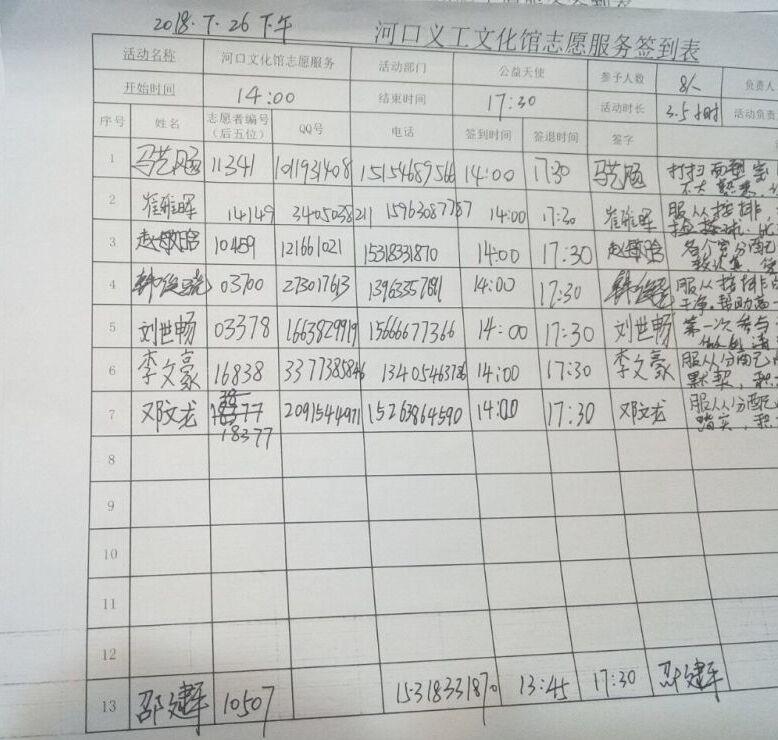 2018.7.26下午
河口义工文化馆志愿服务签到表
活动名称 河口文化馆志愿服务 活动部门 公益天使 参子人数 8人 负责人
开始时间 14:00 结束时间 17:30 活动时长 3.5小时 活动负责
序号 姓名 志愿者编号（后五位） QQ号 电话 签到时间 签退时间 签字
1 11341 1011931408 15154689566 14:00 17:30 打扫
2 崔雅晖 14149 3405038211 15963087787 14:00 17:30 崔雅晖 服从
3 10459 121661021 15318331870 14:00 17:30 各个室分配
4 03700 273017613 14:00 17:30 服从
干净，帮助
5 刘世畅 03378 1663829919 15666677366 14:00 17:30 刘世畅 第一次参与
6 李文豪 16838 14:00 17:30 李文豪 服从分配
默契，积
7 邓文龙 18377 2091544971 15263864590 14:00 17:30 邓文龙 服从分配
踏实，积
8
9
10
11
12
13 邵建军 10507 15318331870 13:45 17:30 邵建军